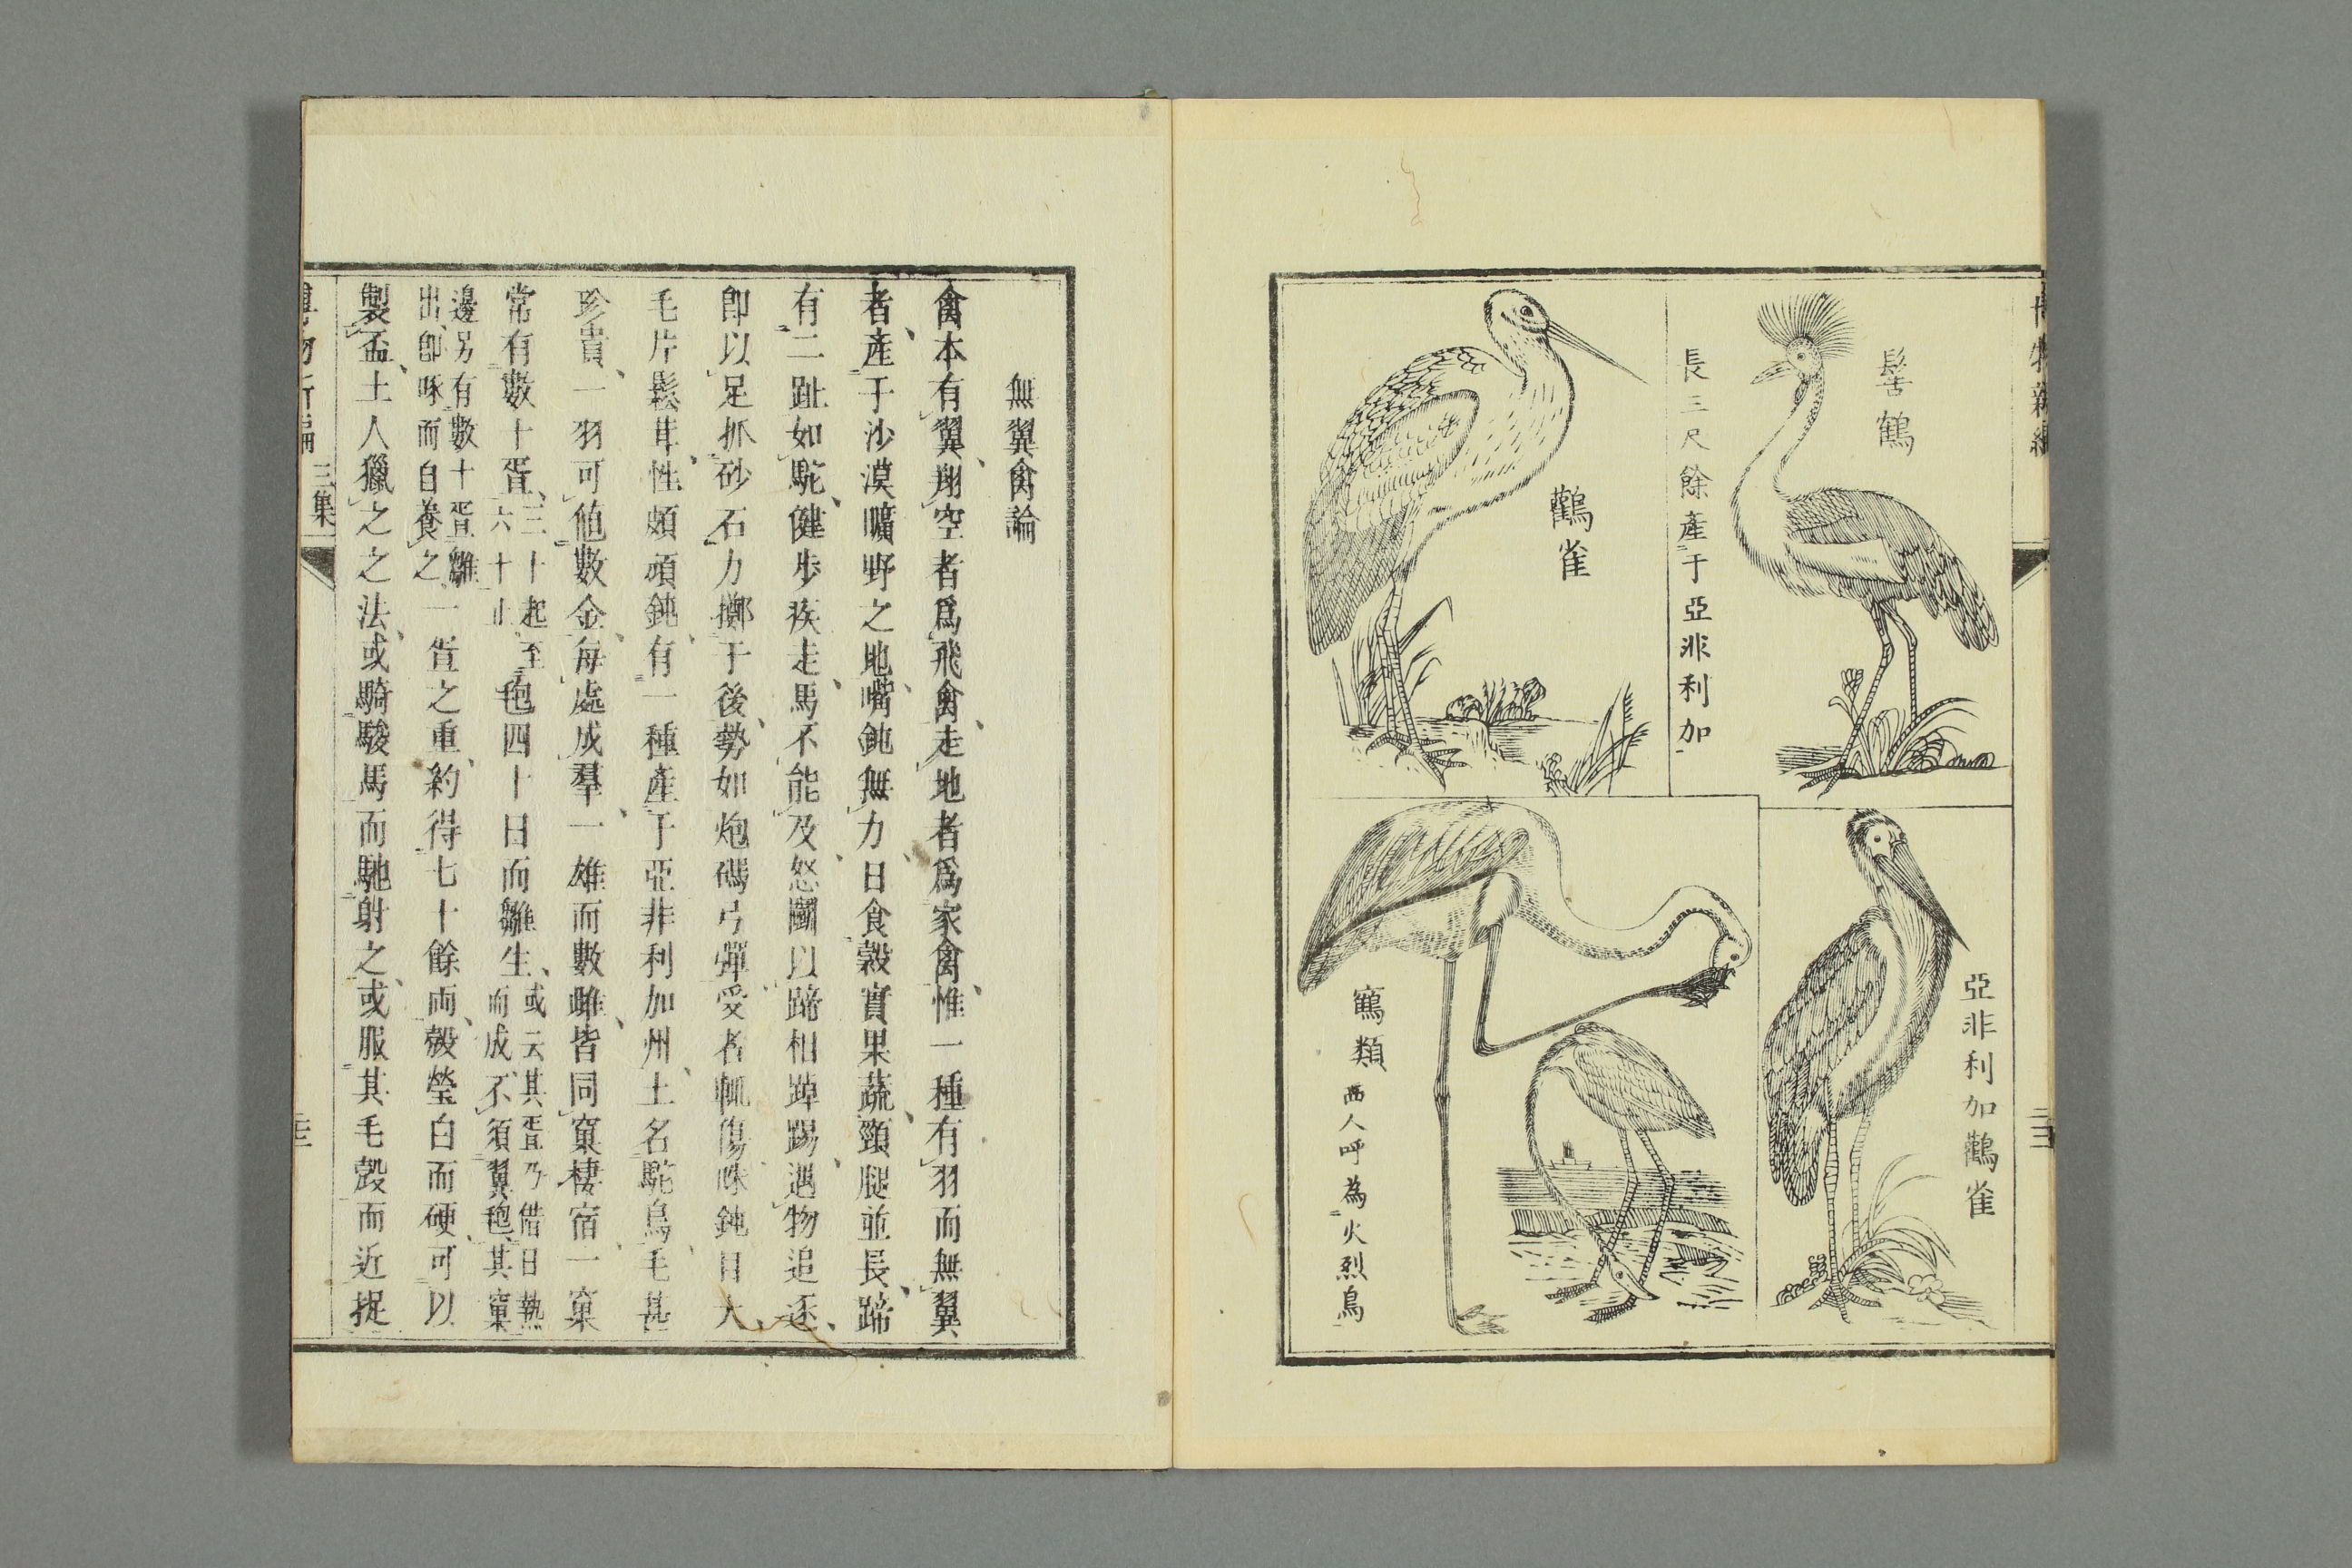 博物新編
三三
髻鶴
長三尺餘產于亞非利加
鸛雀
亞非利加鸛雀
鶴類
西人呼為火烈鳥
無翼禽論
禽本有翼、翔空者爲飛禽、走地者爲家禽、惟一種有羽而無翼
者、產于沙漠曠野之地、嘴鈍無力、日食穀實果蔬、頸腿並長、蹄
有二趾如駝、健步疾走、馬不能及、怒鬭以蹄相踔踢、遇物追逐、
卽以足抓砂石力擲于後、勢如炮碼弓彈、受者輒傷、味鈍目大、
毛片鬆茸、性頗頑鈍、有一種產于亞非利加州、土名駝鳥、毛甚
珍貴、一羽可値數金、每處成羣、一雄而數雌、皆同窠棲宿、一窠
常有數十蛋、三十起至
六十止
菢四十日而雛生、或云其蛋乃借日熱
而成、不須翼菢、其窠
邊另有數十蛋、雛
出、卽啄而自養之
一蛋之重、約得七十餘両、殼瑩白而硬、可以
製盃、土人獵之之法、或騎駿馬而馳射之、或服其毛殼而近捉
博物新編
三集